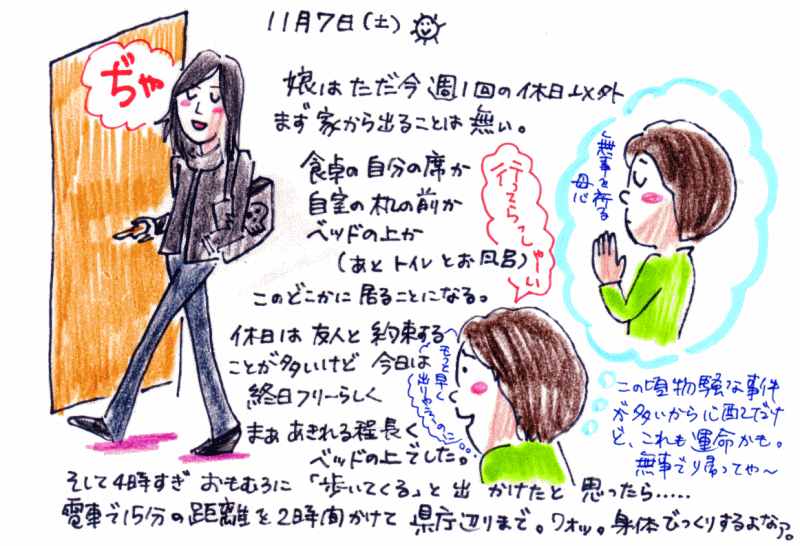 11月7日(土)
ぢゃ
娘はただ今週1回の休日以外
まず家から出ることは無い。
食卓の自分の席か
自室の机の前か
ベッドの上か
(あとトイレとお風呂)
このどこかに居ることになる。
休日は友人と約束する
ことが多いけど今日は
終日フリーらしく
まああきれる程長く
ベッドの上でした。
行ってらっしゃーい
もっと早く
出りゃえーのに
無事を祈る
母心
この頃物騒な事件
が多いから心配だけ
ど、これも運命かも。
無事で帰ってや~
そして4時すぎおもむろに「歩いてくる」と出かけたと思ったら.....
電車で15分の距離を2時間かけて県庁辺りまで。ワオッ。身体びっくりするよなァ。